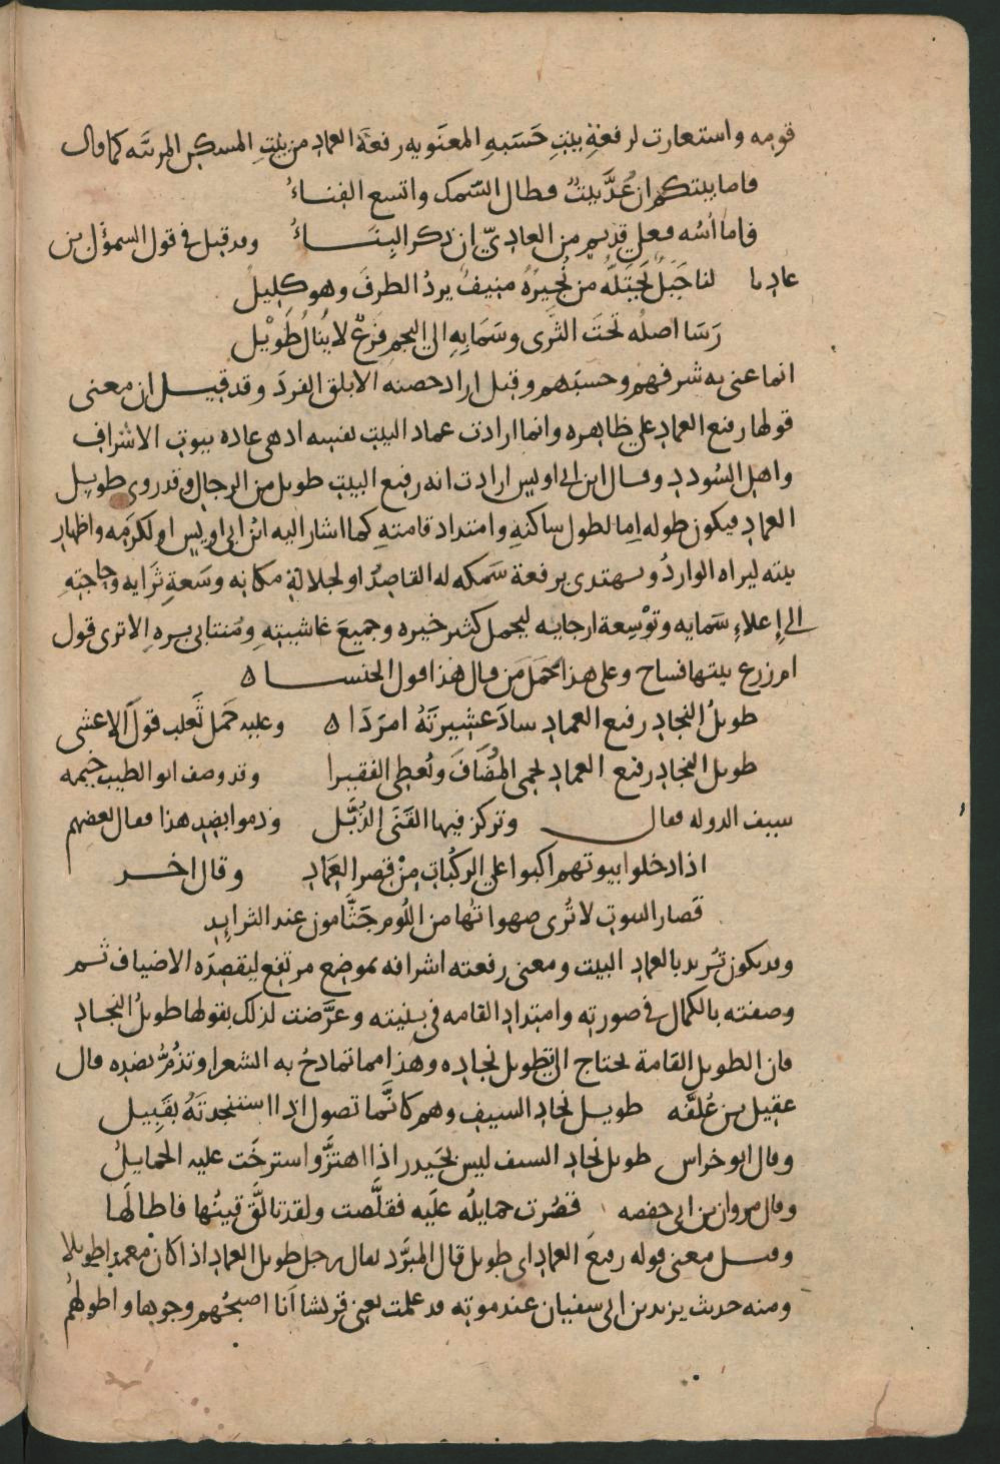 قومه واستعارت لرفعةِ بيتِ حَسَبهِ المعنويه رفعةَ العماد من بيتِ المسكن المرئيه كما قال
فاما بيتكم ان عُدَّ بيتٌ فطال السَّمك واتسع الفِناءُ
فاما أسُّه فعلى قديم من العاديّ ان ذكر البِنَاءُ وقد قيل في قول السموأل بن
عاديا لنا جَبَلٌ يَحتَلُّه من نُجيرُهُ منيفٌ يردُ الطرفَ وهو كليلُ
رَسَا اصلُه تحتَ الثرَى وسَمَا بِهِ الى النجم فرَعٌ لا يُنالُ طَوِيْل
انما عنى به شرفهم وحسبَهم وقيل اراد حصنه الابلق الفردَ وقد قيل ان معنى
قولها رفيع العماد على ظاهره وانما ارادت عماد البيت نفسه اذ هى عادة بيوت الاشراف
واهل السُودد وقال ابن ابى اويس ارادت انه رفيع البيت طويل من الرجال وقد روى طويل
العماد فيكون طوله إما لطول ساكنهِ وامتداد قامتهِ كما اشار اليه ابن ابى اويس او لكرَمه واظهار
بيته ليراه الواردُ ويهتدى برفعة سَمكه له القاصِدُ او لجلالة مكانه وسَعةِ ثرَايه وحاجتِهِ
الى إعلاءِ سَمايه وتوْسِعة ارجايه ليحمل كثير خيره وجميعَ غاشيتِهِ ومُنتابى برهِ الا ترى قول
ام زرع بيتها فساح وعلى هذا يحمَل مَن قال هذا قول الخنساء
طويلُ النجاد رفيع العماد سادَ عشيرتَهُ امرَدَا وعليه حَمل ثَعلب قولَ الاعشى
طويل النجاد رفيع العماد يحمى المُضَافَ ويُعطِى الفقيرا وقد وصف ابو الطيب خيمه
سيف الدوله فقال وتركز فيها القَنَى الذُبَّل وذموا بضد هذا فقال بعضهم
اذا دخلوا بيوتهم اكبوا على الركبات مِنْ قِصر العَمادِ وقال اخر
قصار البيوت لا تُرى صهواتُها من اللوم جَثَّامون عند الشرايد
وقد يكون تُريد بالعماد البيت ومعنى رفعته اشرافه بموضع مرتفع ليقصده الاضياف ثم
وصفته بالكمال في صورته وامتداد القامه في بِنيته وعرَّضت لذلك بقولها طويلُ النجاد
فان الطويل القامة يحتاج الى تطويل نجاده وهذا مما تمادحُ به الشعرا وتذُمُّ بضده قال
عقيل بن عُلَّفَه طويل نجاد السيف وهم كانَّما تصول اذا استنجدتَهُ بقبيل
وقال ابو خراس طويل نجاد السيف ليس بجَيدر اذا اهتزَّوا سترخَت عليه الحمايلُ
وقال مروان بن ابى حفصه قَصُرت حمايلُه عليه فقلَّصت ولقد تانَّق قينُها فاطالَها
وقيل معنى قوله رفيعَ العماد اى طويل قال المبرَّد يقال رجل طويل العماد اذا كان مُعمدا طويلا
ومنه حديث يزيد بن ابى سفيان عند موته قد علمت يعنى قريشا انا اصبحُهم وجوها واطولهُم